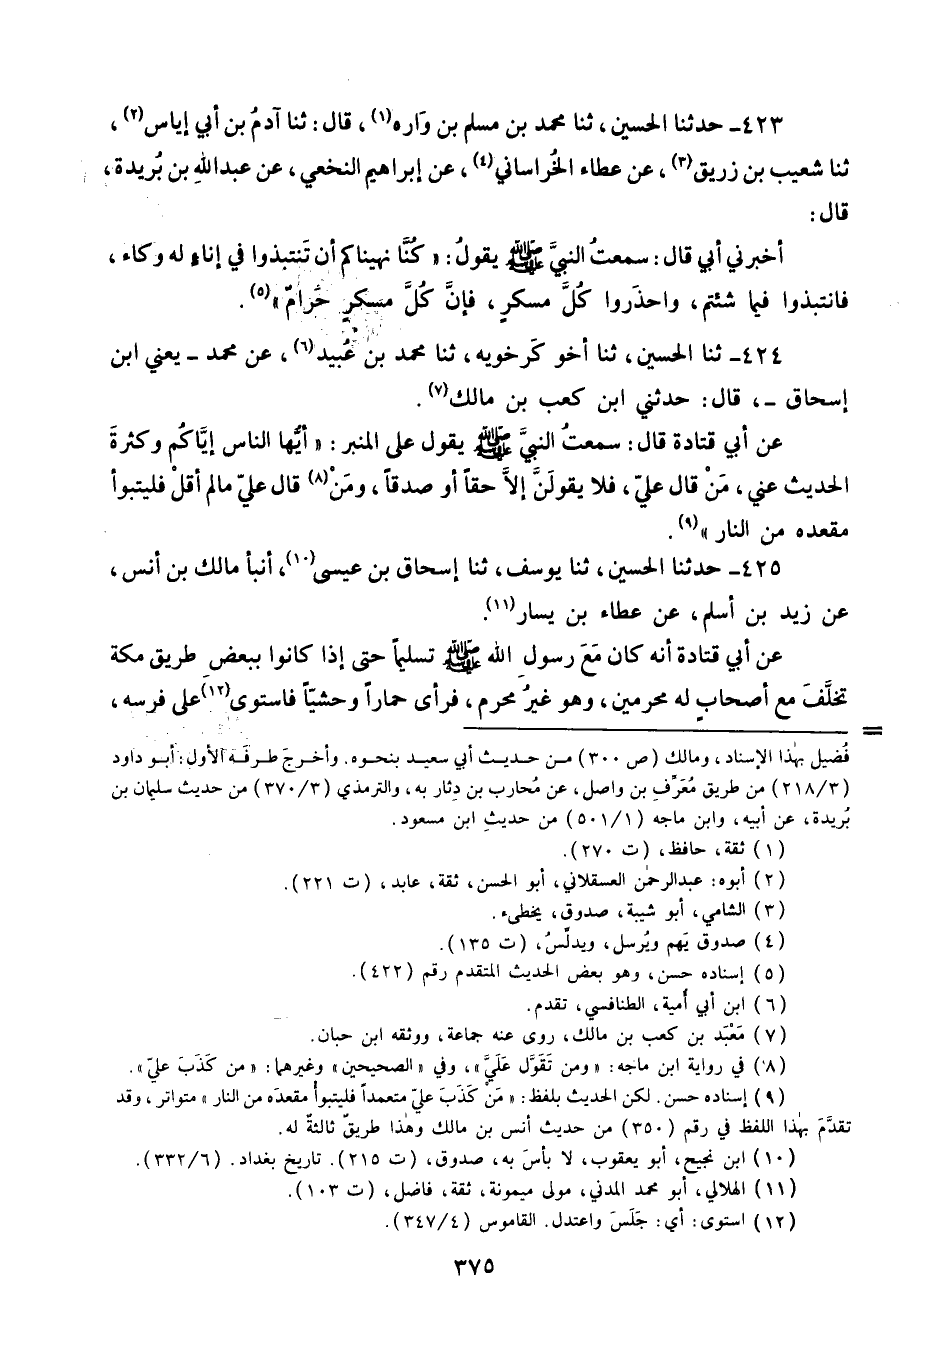 ٤٢٣ـ حدثنا الحسين، ثنا محمد بن مسلم بن وَاره(١)، قال: ثنا آدمُ بن أبي إياس(٢)،
ثنا شعيب بن زريق(٣)، عن عطاء الخُراساني(٤)، عن إبراهيم النخعي، عن عبدالله بن بُريدة،
قال:
أخبرني أبي قال: سمعتُ النبيَّ ﷺ يقولُ: «كُنَّا نهيناكم أن تَنتبذوا في إناءٍ له وكاء،
فانتبذوا فيما شئتم، واحذَروا كُلَّ مسكرٍ، فإنَّ كُلَّ مسكرٍ حَرامٌ»(٥).
٤٢٤ـ ثنا الحسين، ثنا أخو كَرخويه، ثنا محمد بن عُبيد(٦)، عن محمد ـ يعني ابن
إسحاق ـ، قال: حدثني ابن كعب بن مالك(٧).
عن أبي قتادة قال: سمعتُ النبيَّ ﷺ يقول على المنبر: «أيُّها الناس إيَّاكُم وكثرةَ
الحديث عني، مَنْ قال عليّ، فلا يقولَنَّ إلاَّ حقاً أو صدقاً، ومَنْ(٨) قال عليّ مالم أقلْ فليتبوأ
مقعده من النار»(٩).
٤٢٥ـ حدثنا الحسين، ثنا يوسف، ثنا إسحاق بن عيسى(١٠)، أنبأ مالك بن أنس،
عن زيد بن أسلم، عن عطاء بن يسار(١١).
عن أبي قتادة أنه كان مَعَ رسول الله ﷺ تسليماً حتى إذا كانوا ببعض طريق مكة
تخلَّفَ مع أصحاب له محرمين، وهو غيرُ محرم، فرأى حماراً وحشيّاً فاستوى(١٢) على فرسه،
= فُضيل بهٰذا الإسناد، ومالك (ص ٣٠٠) من حديث أبي سعيد بنحوه. وأخرجَ طرفَه الأول: أبو داود
(٢١٨/٣) من طريق مُعَرِّف بن واصل، عن مُحارب بن دِثار به، والترمذي (٣٧٠/٣) من حديث سليمان بن
بُريدة، عن أبيه، وابن ماجه (٥٠١/١) من حديثِ ابن مسعود.
(١) ثقة، حافظ، (ت ٢٧٠).
(٢) أبوه: عبدالرحمٰن العسقلاني، أبو الحسن، ثقة، عابد، (ت ٢٢١).
(٣) الشامي، أبو شيبة، صدوق، يخطىء.
(٤) صدوق يَهم ويُرسل، ويدلّسُ، (ت ١٣٥).
(٥) إسناده حسن، وهو بعض الحديث المتقدم رقم (٤٢٢).
(٦) ابن أبي أُمية، الطنافسي، تقدم.
(٧) مَعْبَد بن كعب بن مالك، روى عنه جماعة، ووثقه ابن حبان.
(٨) في رواية ابن ماجه: «ومن تَقَوَّل عَلَيَّ»، وفي «الصحيحين» وغيرهما: «من كَذَبَ عليّ».
(٩) إسناده حسن. لكن الحديث بلفظ: «مَنْ كَذَبَ عليّ متعمداً فليتبوأُ مقعدَه من النار» متواتر، وقد
تقدَّمَ بهٰذا اللفظ في رقم (٣٥٠) من حديث أنس بن مالك وهٰذا طريقٌ ثالثةٌ له.
(١٠) ابن نجيح، أبو يعقوب، لا بأسَ به، صدوق، (ت ٢١٥). تاريخ بغداد. (٣٣٢/٦).
(١١) الهلالي، أبو محمد المدني، مولى ميمونة، ثقة، فاضل، (ت ١٠٣).
(١٢) استوى: أي: جَلَسَ واعتدل. القاموس (٣٤٧/٤).
٣٧٥